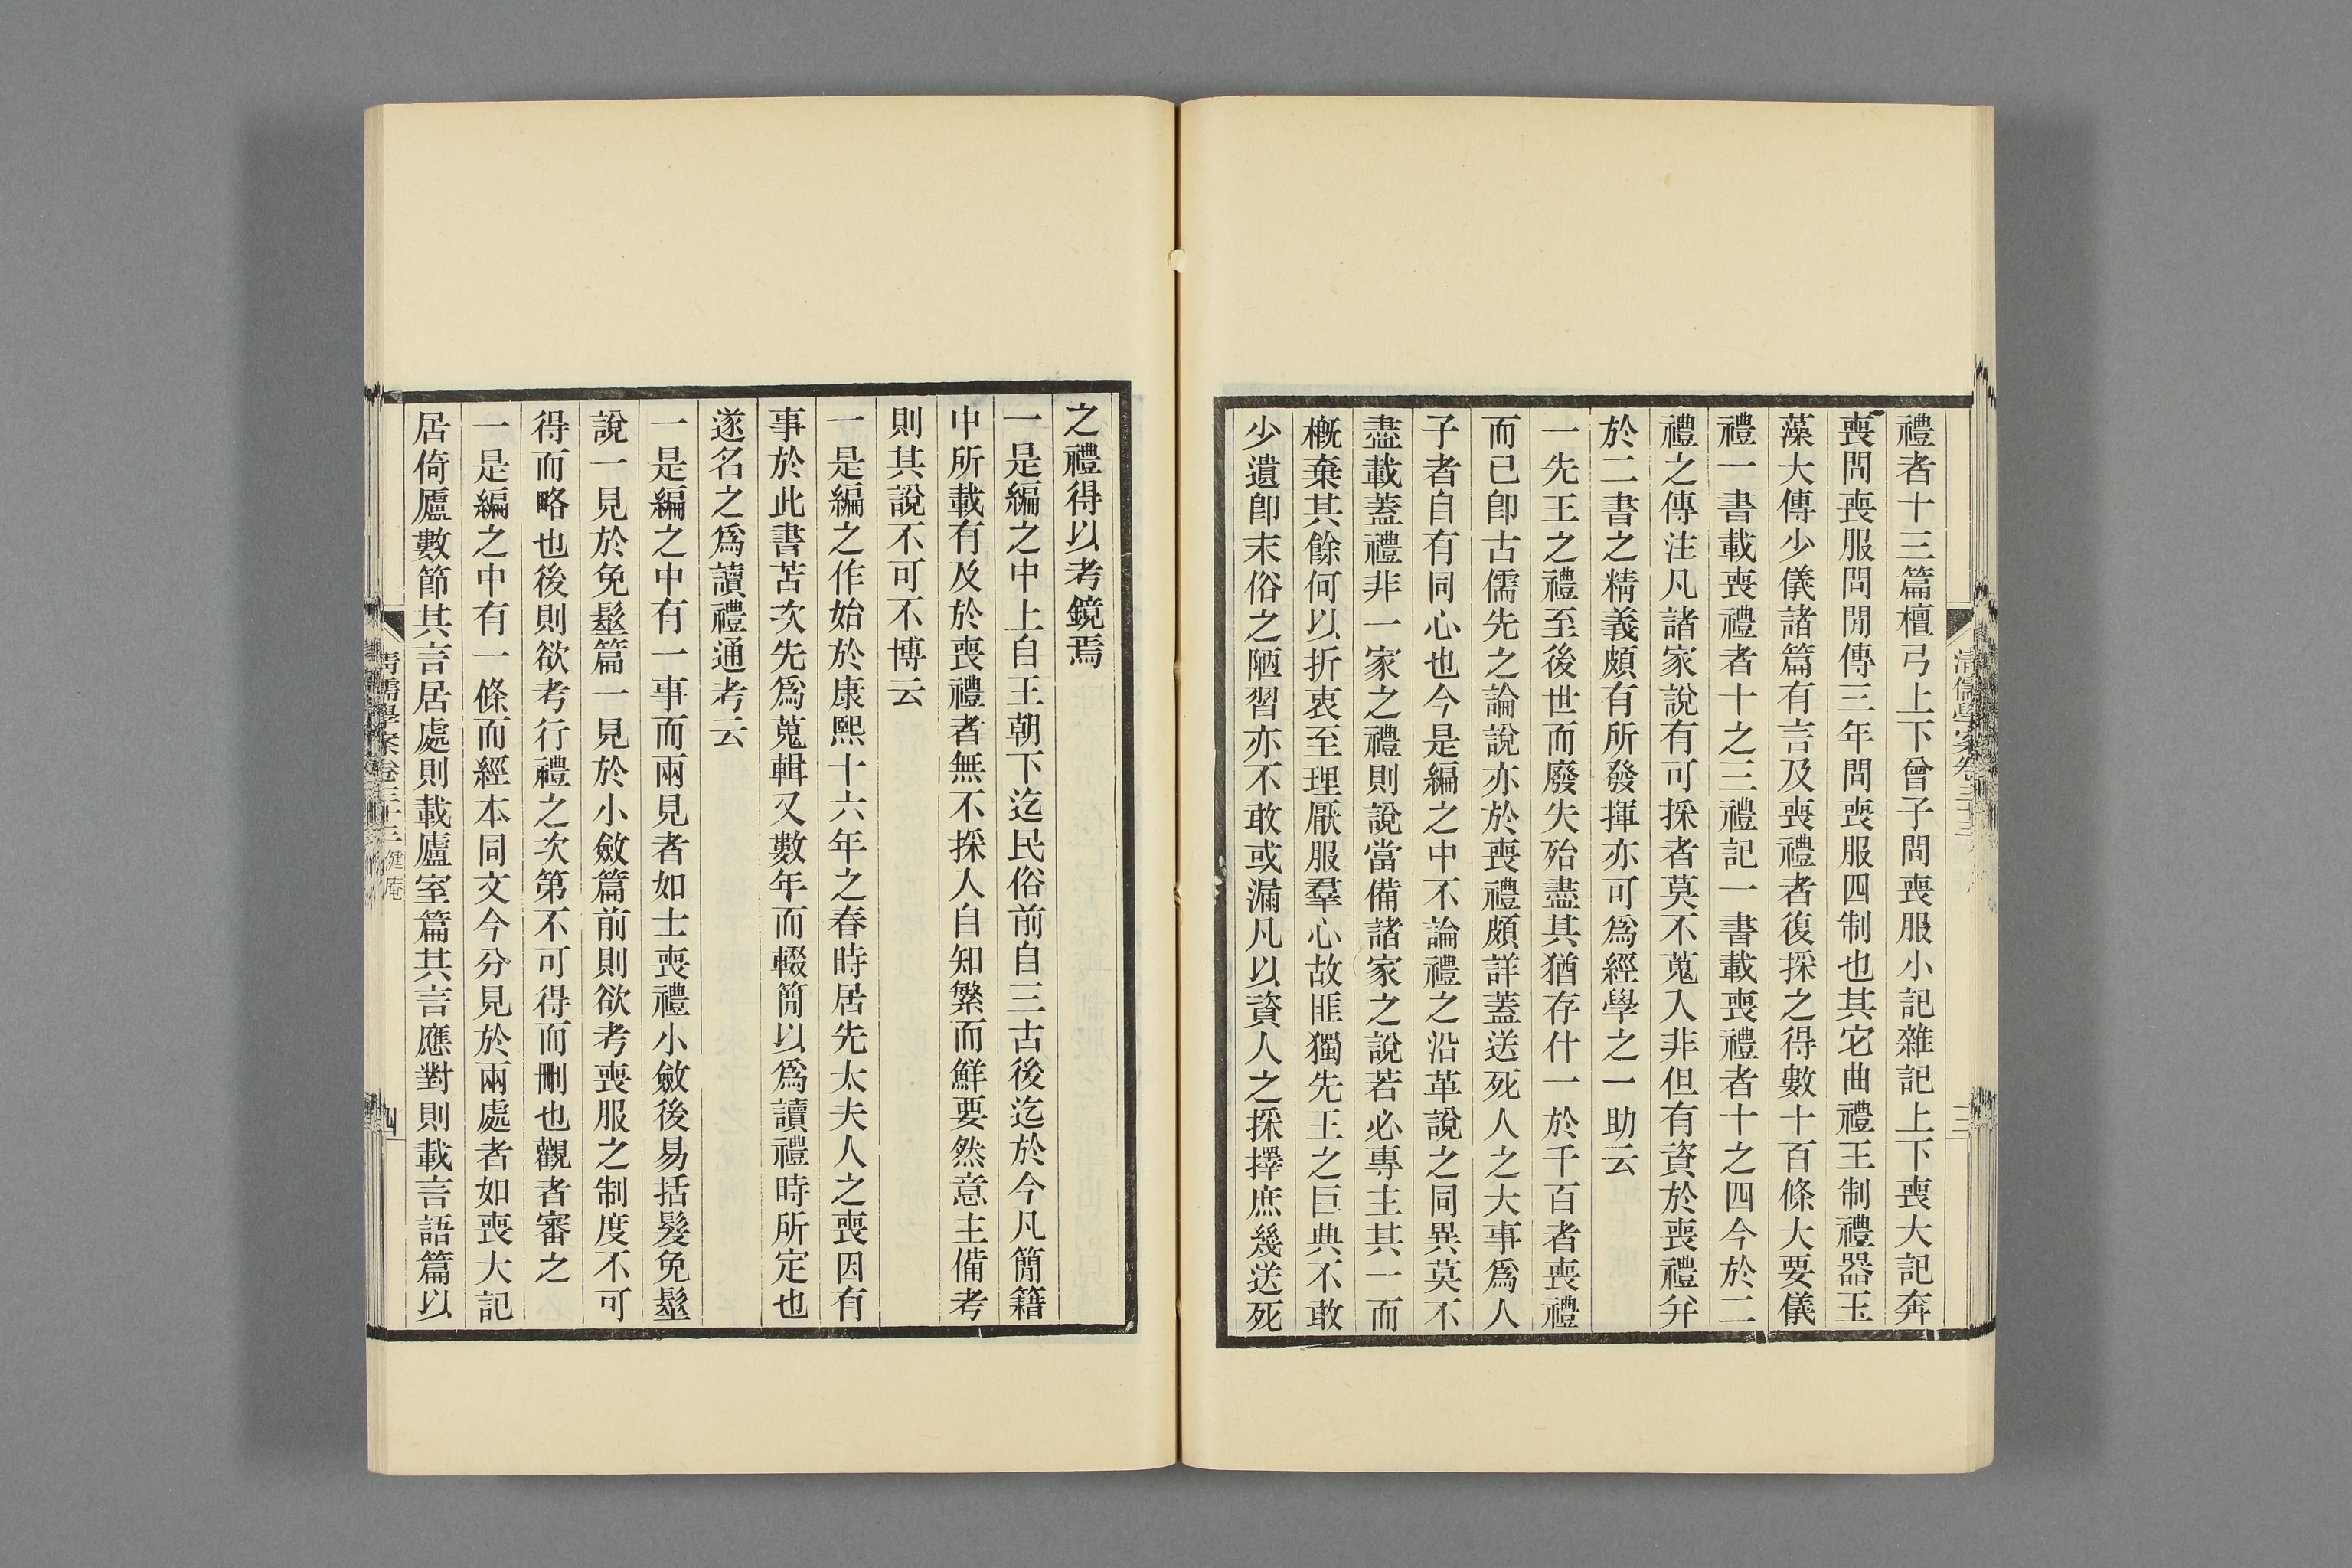 禮者十三篇檀弓上下曾子問喪服小記雜記上下喪大記奔
喪問喪服問閒傳三年問喪服四制也其它曲禮王制禮器玉
藻大傳少儀諸篇有言及喪禮者復採之得數十百條大要儀
禮一書載喪禮者十之三禮記一書載喪禮者十之四今於二
禮之傳注凡諸家說有可採者莫不蒐入非但有資於喪禮弁
於二書之精義頗有所發揮亦可爲經學之一助云
一先王之禮至後世而廢失殆盡其猶存什一於千百者喪禮
而已卽古儒先之論說亦於喪禮頗詳蓋送死人之大事爲人
子者自有同心也今是編之中不論禮之沿革說之同異莫不
盡載蓋禮非一家之禮則說當備諸家之說若必專主其一而
槪棄其餘何以折衷至理厭服羣心故匪獨先王之巨典不敢
少遺卽末俗之陋習亦不敢或漏凡以資人之採擇庶幾送死
之禮得以考鏡焉
一是編之中上自王朝下迄民俗前自三古後迄於今凡簡籍
中所載有及於喪禮者無不採入自知繁而鮮要然意主備考
則其說不可不博云
一是編之作始於康熙十六年之春時居先太夫人之喪因有
事於此書苫次先爲蒐輯又數年而輟簡以爲讀禮時所定也
遂名之爲讀禮通考云
一是編之中有一事而兩見者如士喪禮小斂後易括髮免髽
說一見於免髽篇一見於小斂篇前則欲考喪服之制度不可
得而略也後則欲考行禮之次第不可得而刪也觀者審之
一是編之中有一條而經本同文今分見於兩處者如喪大記
居倚廬數節其言居處則載廬室篇其言應對則載言語篇以
清儒學案卷三十三 健庵
四
清儒學案卷三十三
三